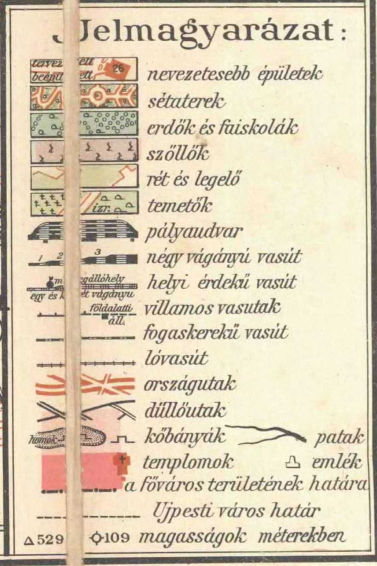 Jelmagyarázat:
26 nevezetesebb épületek
sétaterek
erdők és faiskolák
szőllők
rét és legelő
izr. temetők
pályaudvar
1 2 3 négy vágányú vasút
helyi érdekű vasút
egy és vágányu
földalatti áll. villamos vasutak
fogaskerekű vasút
lóvasút
országutak
dűllőutak
homok kőbányák patak
templomok emlék
a főváros területének határa
Ujpesti város határ
529 109 magasságok méterekben